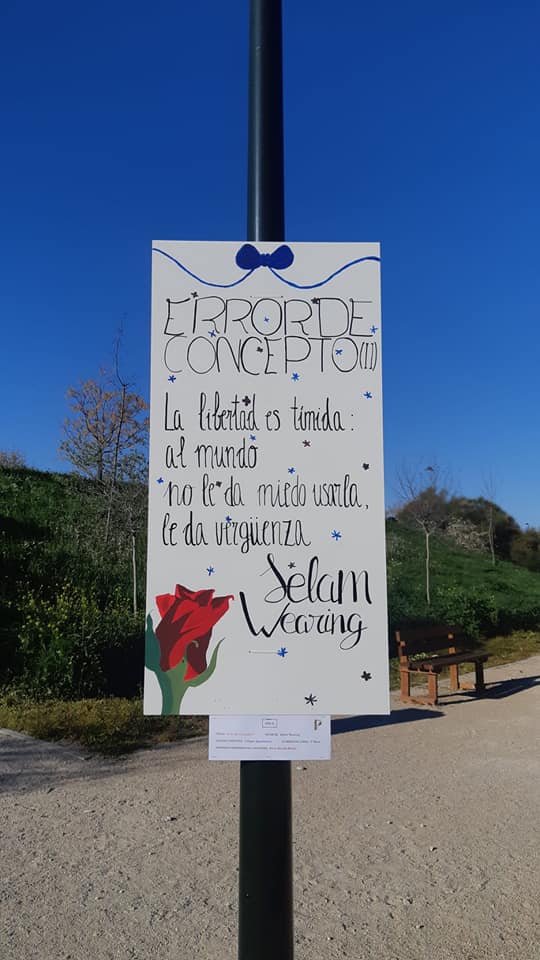 ERROR DE
CONCEPTO (II)
La libertad es tímida:
al mundo
no le da miedo usarla,
le da vergüenza
Selam
Wearing
P